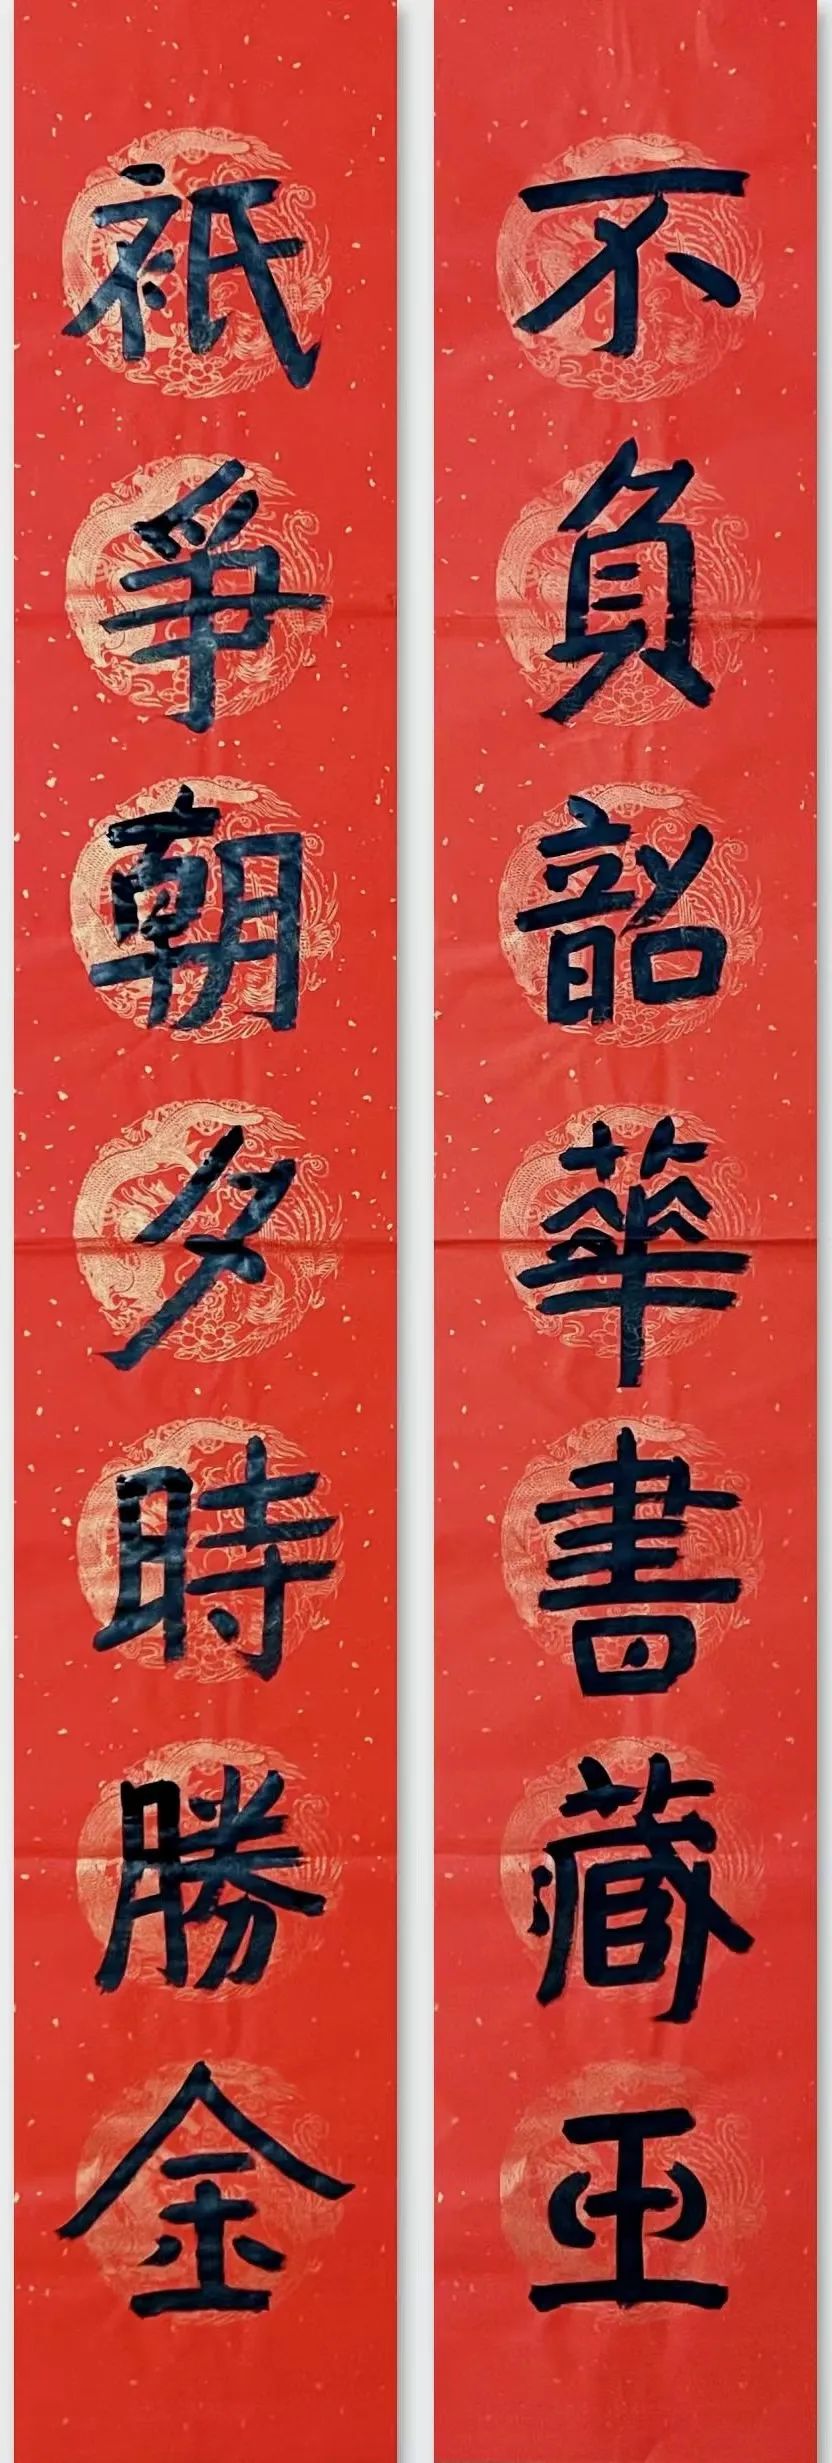 不負韶華書藏玉
衹爭朝夕時勝金